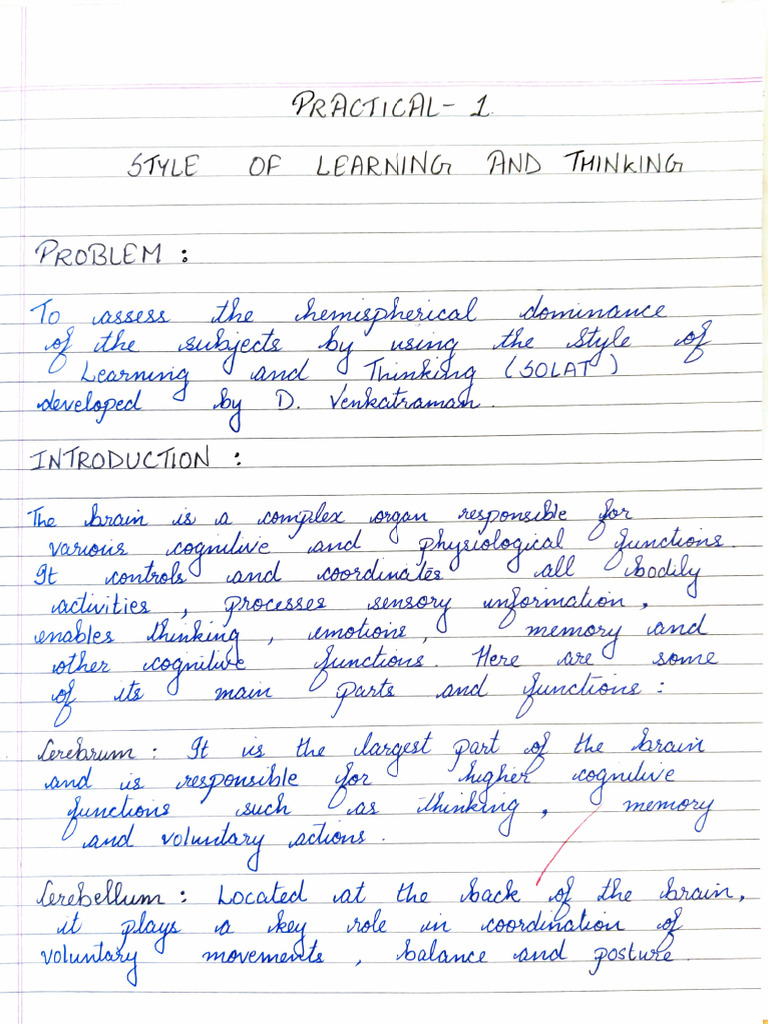 PRACTICAL- 1
STYLE OF LEARNING AND THINKING
PROBLEM :
To assess the hemispherical dominance
of the subjects by using the Style of
Learning and Thinking (SOLAT)
developed by D. Venkatraman.
INTRODUCTION :
The brain is a complex organ responsible for
various cognitive and physiological functions.
It controls and coordinates all bodily
activities , processes sensory information,
enables thinking , emotions, memory and
other cognitive functions. Here are some
of its main parts and functions :
Cerebrum : It is the largest part of the brain
and is responsible for higher cognitive
functions such as thinking , memory
and voluntary actions .
Cerebellum : Located at the back of the brain,
it plays a key role in coordination of
voluntary movements , balance and posture.